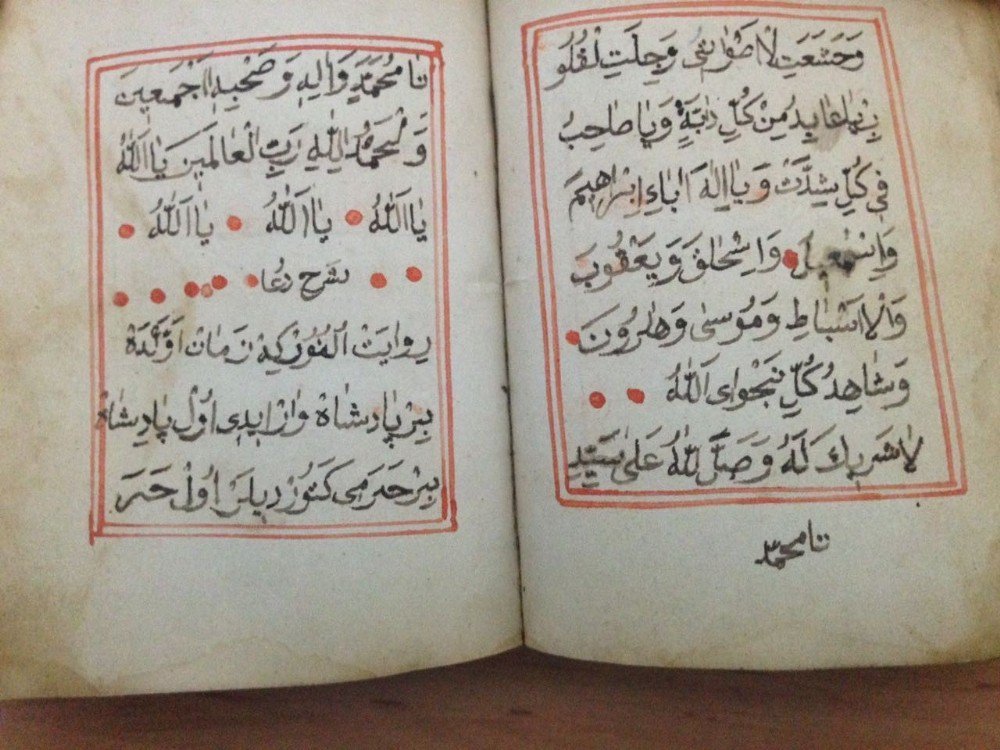 وَخَشَعَتِ لْاَصْوَاتُ وَجِلَتِ لْقُلُو
مِنْ كُلِّ دَابَّةٍ وَيَا صَاحِبُ
فِى كُلِّ شِدَّتْ وَيَا اِلٰهَ اٰبَاءِ اِبْرَاهِيمَ
وَاِسْمٰعِيلَ وَاِسْحٰاقَ وَيَعْقُوبَ
وَالْاَسْبَاطِ وَمُوسٰى وَهٰارُونَ
وَشَاهِدُ كُلِّ نَجْوَاى اَللّٰهُ
لاٰ شَرِيكَ لَهُ وَصَلَّ للّٰهُ عَلٰى سَيِّدِ
نا محمد
نَا مُحَمَّدٍ وَاٰلِهِ وَصَحْبِهِ اَجْمَعِينَ
وَلْحَمْدُ لِلّٰهِ رَبِّ الْعٰالَمِينَ يٰا اَللّٰهُ
يٰا اَللّٰهُ يٰا اَللّٰهُ يٰا اَللّٰهُ
شرح دعا
رِوَايَتْ زَمَانْ اَوَّلْدَهْ
بِيْر پٰادِشٰاهْ وٰارْ ايدِى اُولْ پٰادِشٰاهْ
بِيْر حَرَمِى اُولْ حَرَ